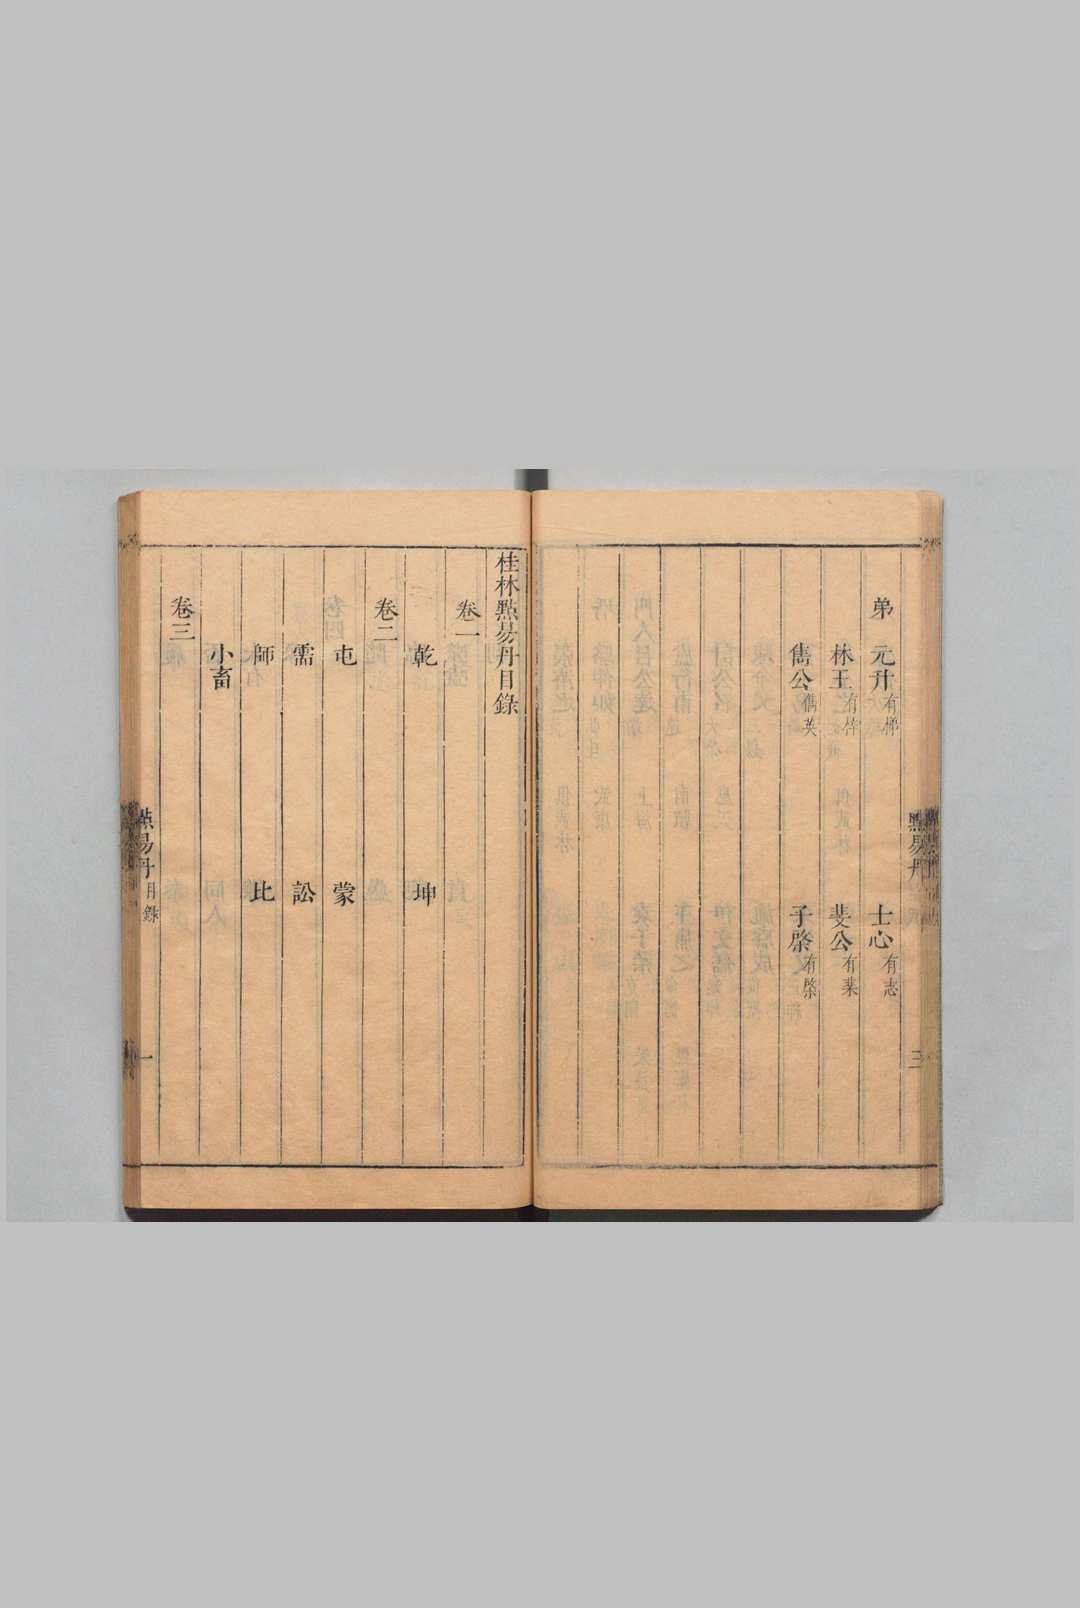 弟 元升 有㭿 士心 有志
林玉 有𣏌 斐公 有棐
雋公 儁英 子棨 有棨
點易丹 三
桂林點易丹目錄
卷一
乾 坤
卷二
屯 蒙
需 訟
師 比
小畜
卷三
點易丹 目錄 一